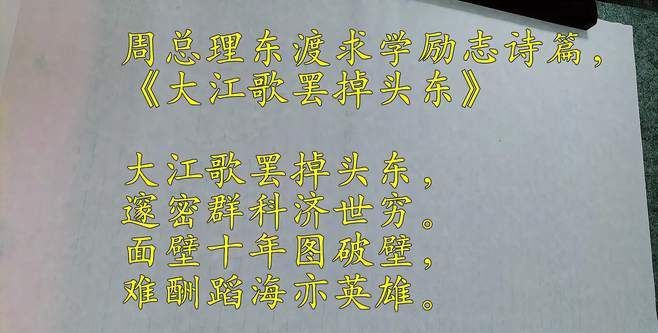 周总理东渡求学励志诗篇，
《大江歌罢掉头东》
大江歌罢掉头东，
邃密群科济世穷。
面壁十年图破壁，
难酬蹈海亦英雄。